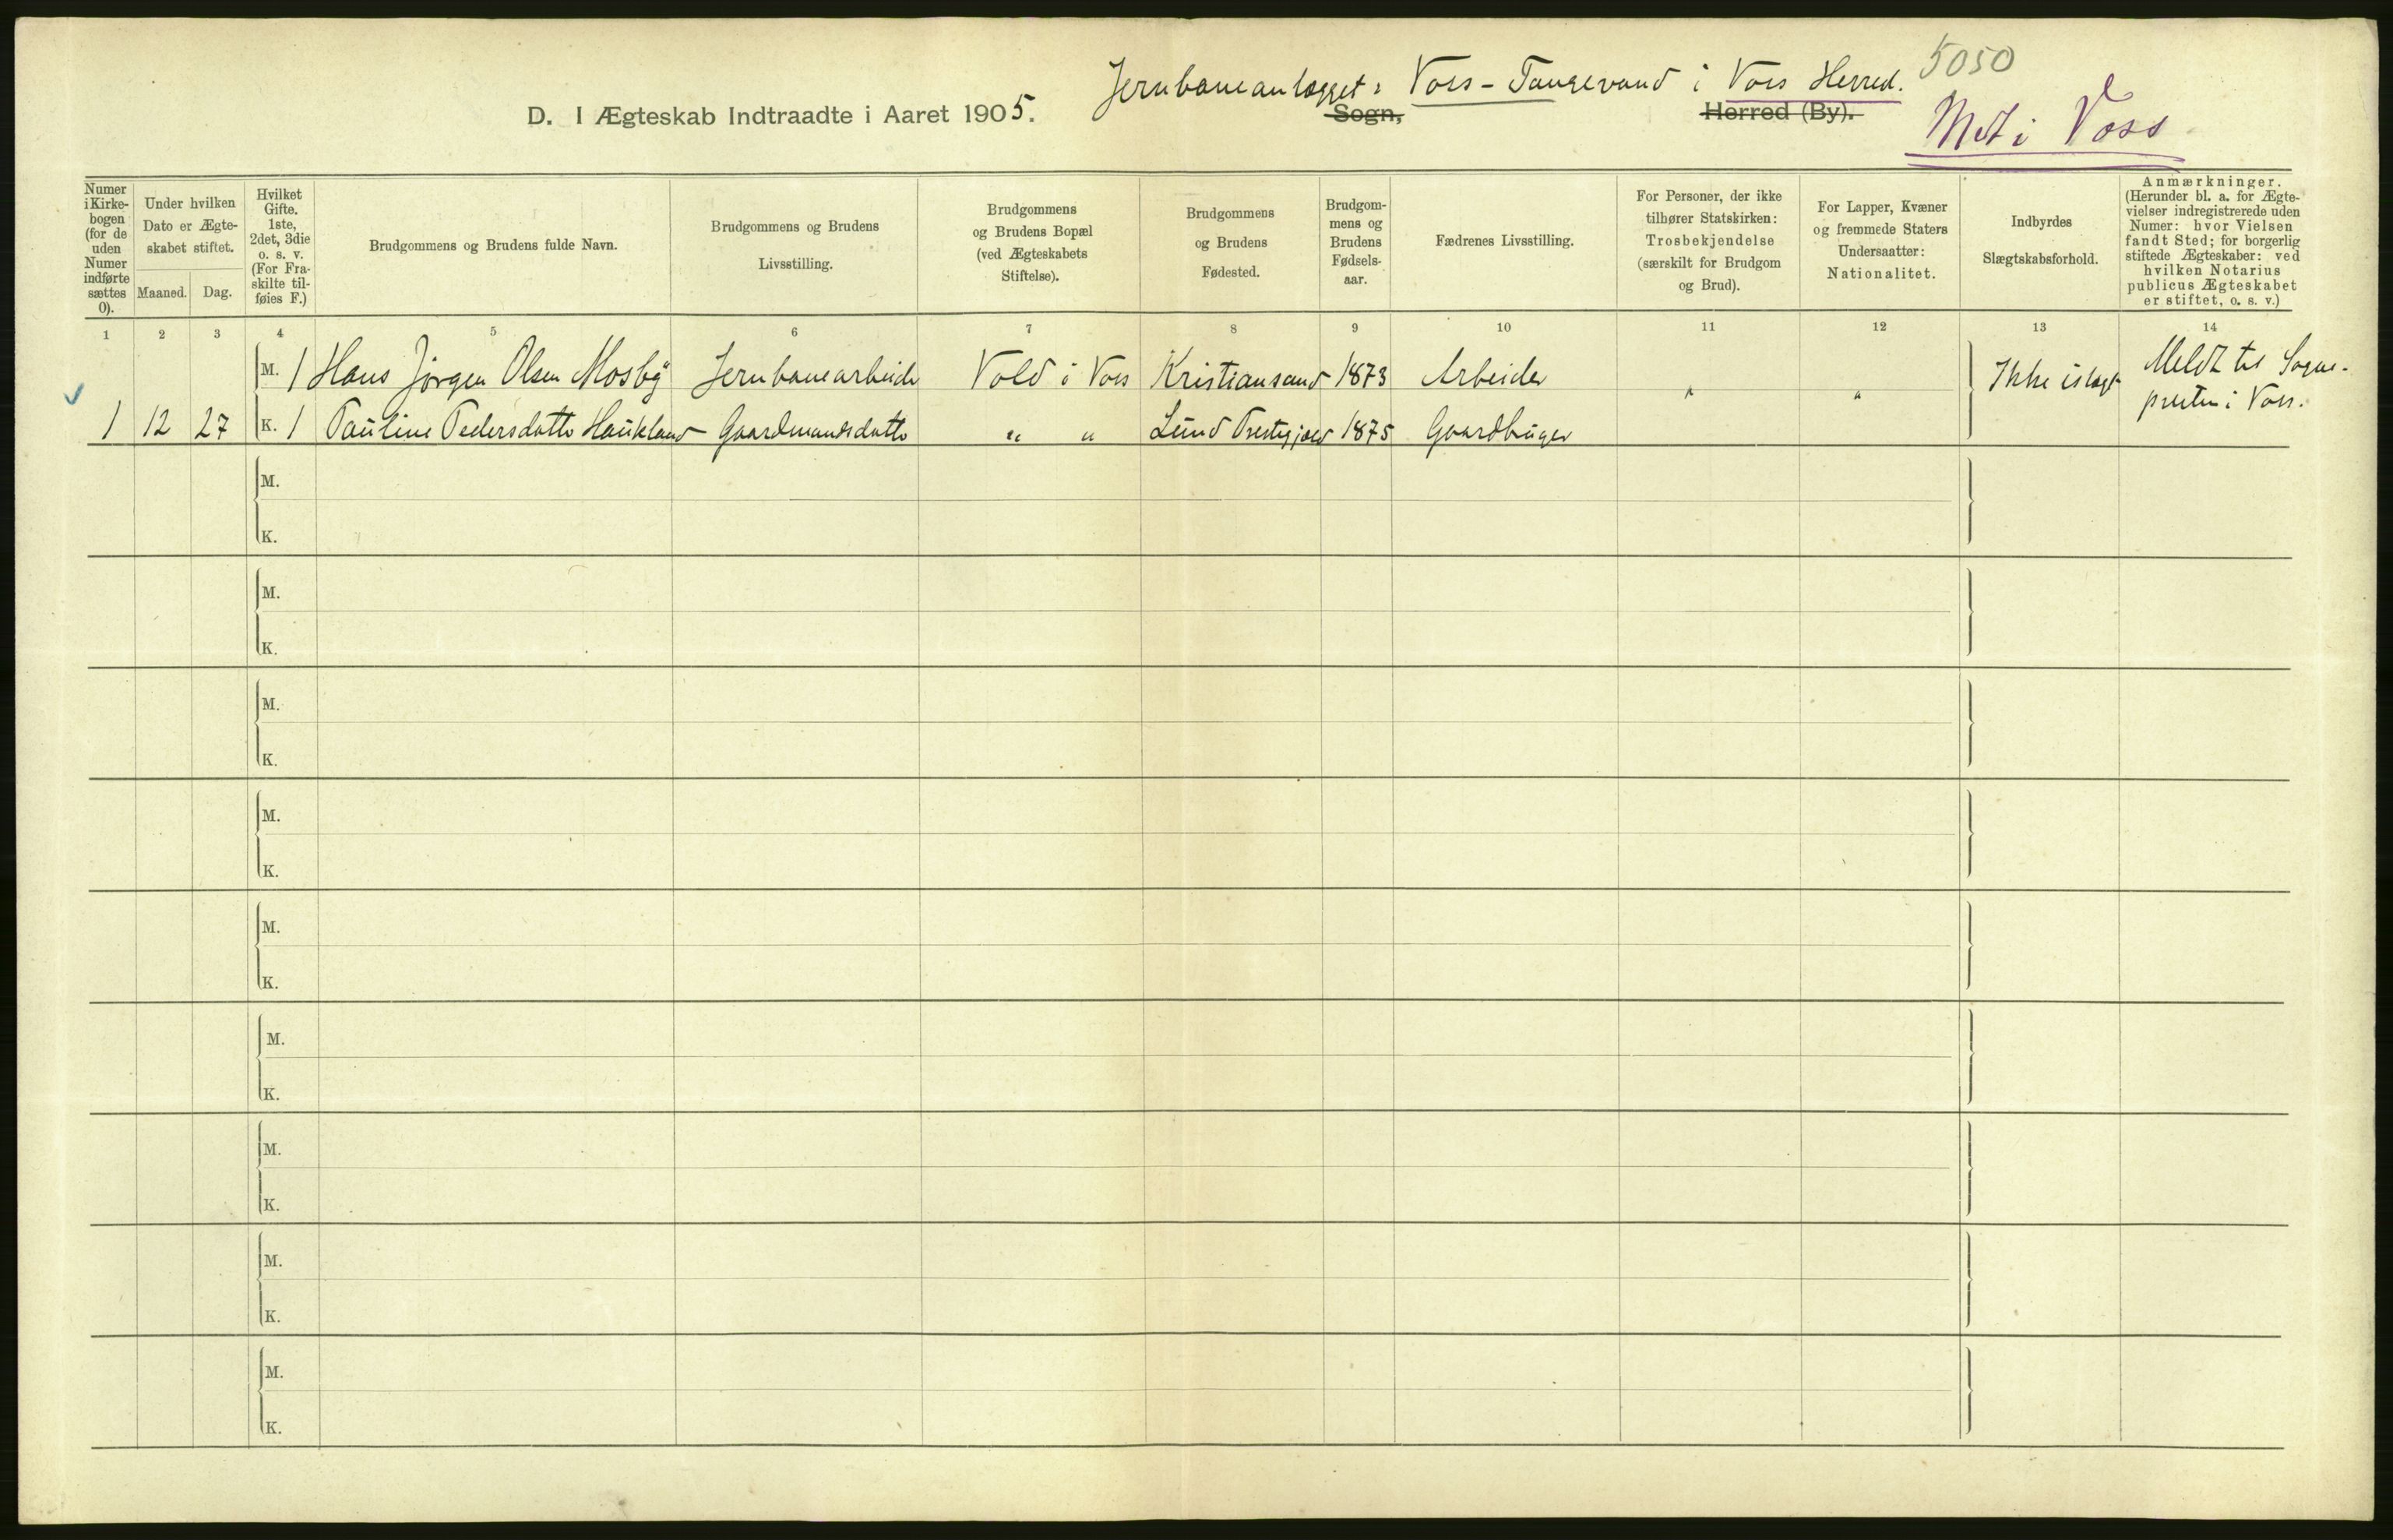 Jernbaneanlægget: Voss - Taugevand i Voss Herred. 5050
D. I Ægteskab Indtraadte i Aaret 1905. Sogn, Herred (By).
Mst i Voss
Numer i Kirkebogen (for de uden Numer indførte sættes 0).
Under hvilken Dato er Ægteskabet stiftet.
Maaned. Dag.
Hvilket Gifte. 1ste, 2det, 3die o. s. v. (For Fraskilte tilføies F.)
Brudgommens og Brudens fulde Navn.
Brudgommens og Brudens Livsstilling.
Brudgommens og Brudens Bopæl (ved Ægteskabets Stiftelse).
Brudgommens og Brudens Fødested.
Brudgommens og Brudens Fødselsaar.
Fædrenes Livsstilling.
For Personer, der ikke tilhører Statskirken: Trosbekjendelse (særskilt for Brudgom og Brud).
For Lapper, Kvæner og fremmede Staters Undersaatter: Nationalitet.
Indbyrdes Slægtskabsforhold.
Anmærkninger. (Herunder bl. a. for Ægtevielser indregistrerede uden Numer: hvor Vielsen fandt Sted; for borgerlig stiftede Ægteskaber: ved hvilken Notarius publicus Ægteskabet er stiftet, o. s. v.)
1 2 3 4 5 6 7 8 9 10 11 12 13 14
M. 1 Hans Jörgen Olsen Mosby Jernbanearbeider Vold i Voss Kristiansand 1873 Arbeider " " Ikke i slægt Meldt til Sogne-
presten i Voss.
1 12 27 K. 1 Pauline Pedersdatter Haukland Gaardmandsdatter " " Lund Prestegjæld 1875 Gaardbruger
M.
K.
M.
K.
M.
K.
M.
K.
M.
K.
M.
K.
M.
K.
M.
K.
M.
K.